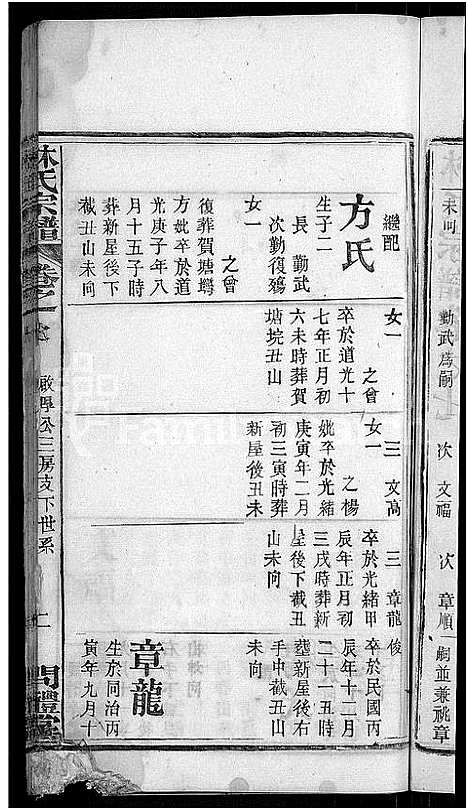 未向
勤武爲嗣
次 文福
次 章順
嗣並兼祧章
繼配
方氏
生子二
長 勤武
次勤復殤
女一
之曾
復葬賀塘塆
方妣卒於道
光庚子年八
月十五子時
葬新屋後下
截丑山未向
女一
之曾
卒於道光十
七年正月初
六未時葬賀
塘垸丑山
三 文高
女一
之楊
妣卒於光緒
庚寅年二月
初三寅時葬
新屋後丑未
三 章龍
卒於光緒甲
辰年正月初
三戌時葬新
屋後下截丑
山未向
俊
卒於民國丙
辰年十二月
二十一五時
塟新屋後右
手中截丑山
未向
章龍
生於同治丙
寅年九月十
林氏宗譜
卷之一
啟厚公三房支下世系
二
問禮堂